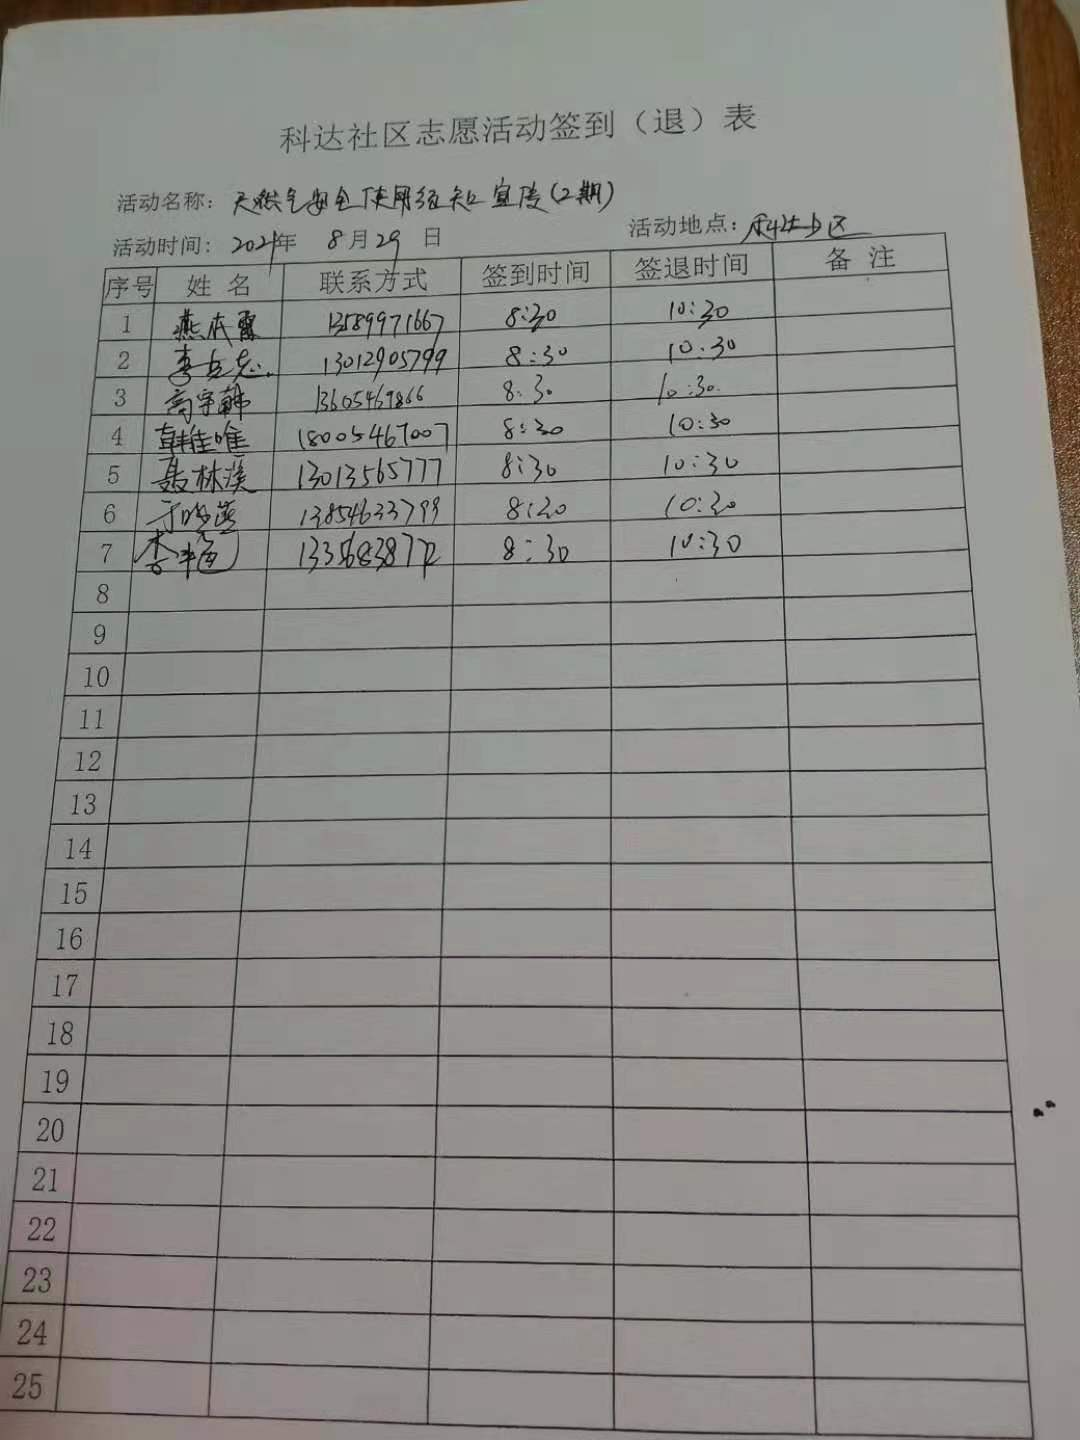 科达社区志愿活动签到（退）表
活动名称：天然气安全使用须知宣传(2期)
活动时间：2021年 8月29日 活动地点：科达小区
序号 姓名 联系方式 签到时间 签退时间 备注
1 燕成霞 13589971667 8:30 10:30
2 李立志 13012905799 8:30 10:30
3 高宇韩 13605469866 8:30 10:30
4 韩佳唯 18005467007 8:30 10:30
5 聂林溪 13013565777 8:30 10:30
6 于晓燕 13854633799 8:30 10:30
7 8:30 10:30
8
9
10
11
12
13
14
15
16
17
18
19
20
21
22
23
24
25